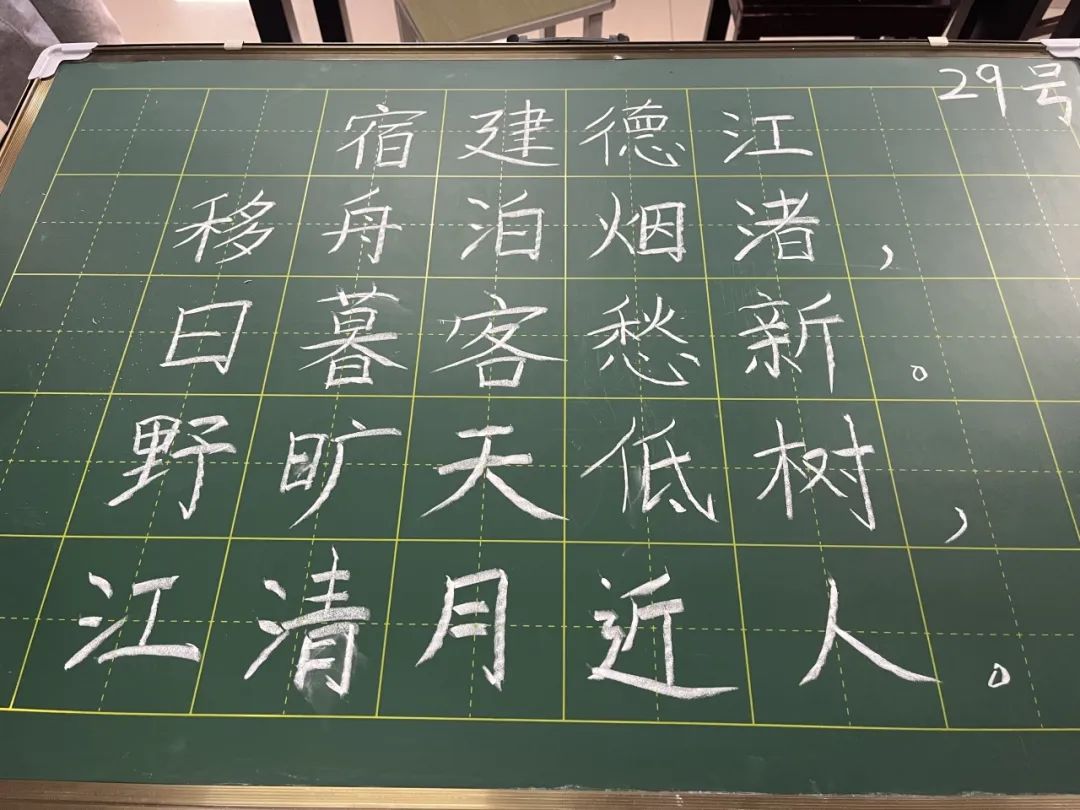 29号
宿建德江
移舟泊烟渚，
日暮客愁新。
野旷天低树，
江清月近人。